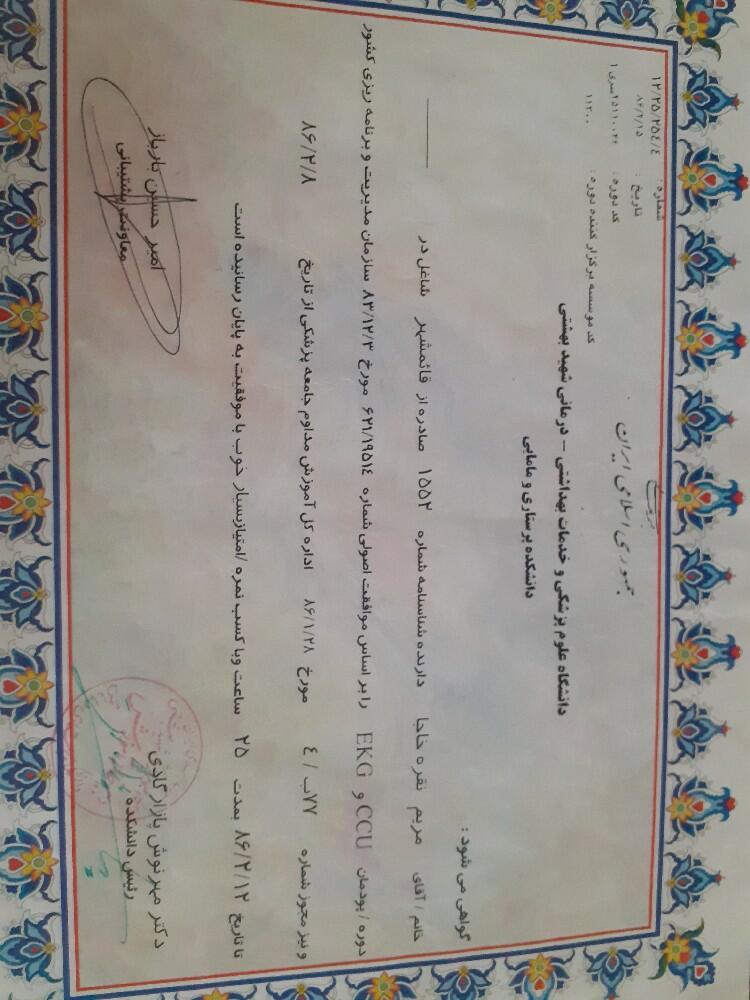 جمهوری اسلامی ایران
شماره : ۱۲/۲۵/۲۵۴/٤
تاریخ : ۸۶/۲/۱۵
کد دوره :
کد موسسه برگزار کننده دوره : ۱۱۲۰۰
دانشگاه علوم پزشکی و خدمات بهداشتی – درمانی شهید بهشتی
دانشکده پرستاری و مامایی
گواهی می شود :
خانم / آقای مریم نقره خاجا دارنده شناسنامه شماره ۱۵۵۲ صادره از قائمشهر شاغل در
دوره / پودمان CCU و EKG را بر اساس موافقت اصولی شماره ۶۲۱/۱۹۵۱٤ مورخ ۸۳/۱۲/۳ سازمان مدیریت و برنامه ریزی کشور
و نیز مجوز شماره ۷۷ب / ٤ مورخ ۸۶/۱/۲۸ اداره کل آموزش مداوم جامعه پزشکی از تاریخ ۸۶/۲/۸
تا تاریخ ۸۶/۲/۱۲ بمدت ۲۵ ساعت وبا کسب نمره /امتیازبسیار خوب با موفقیت به پایان رسانیده است
دکتر مهرنوش پازارگادی
رئیس دانشکده
امیر حسین بارباز
معاونت پشتیبانی